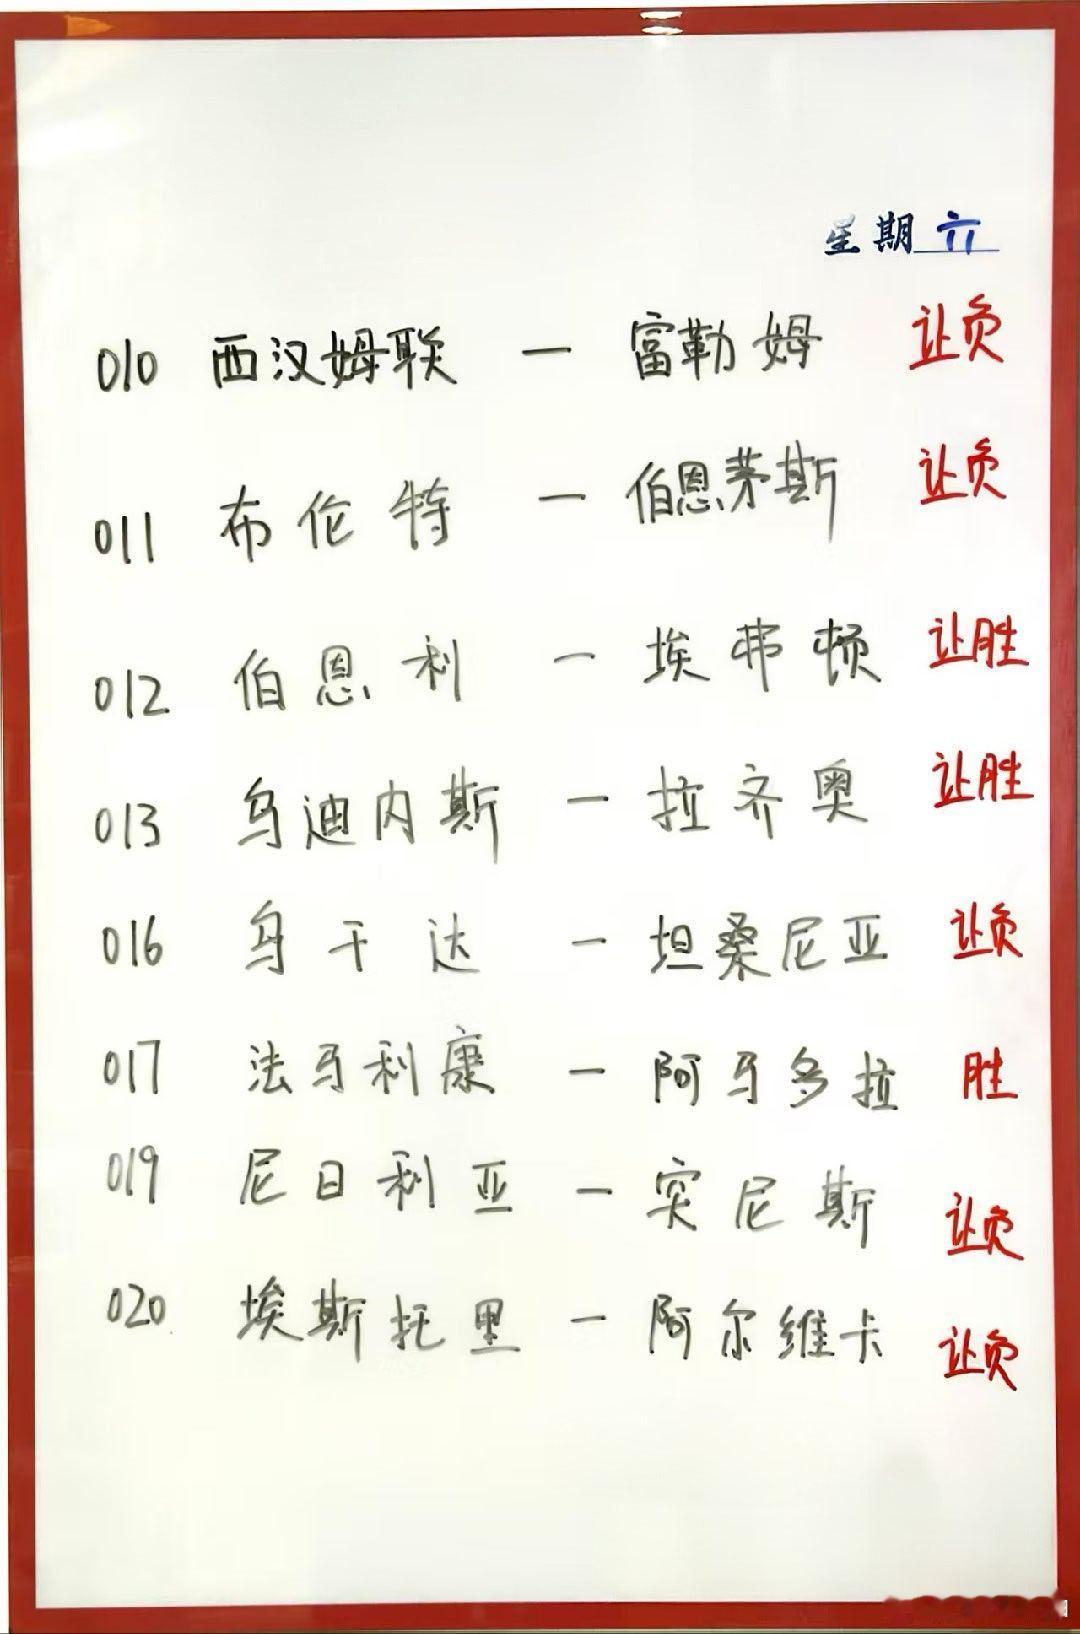 星期六
010 西汉姆联 — 富勒姆 让负
011 布伦特 — 伯恩茅斯 让负
012 伯恩利 — 埃弗顿 让胜
013 乌迪内斯 — 拉齐奥 让胜
016 乌干达 — 坦桑尼亚 让负
017 法马利康 — 阿马多拉 胜
019 尼日利亚 — 突尼斯 让负
020 埃斯托里 — 阿尔维卡 让负